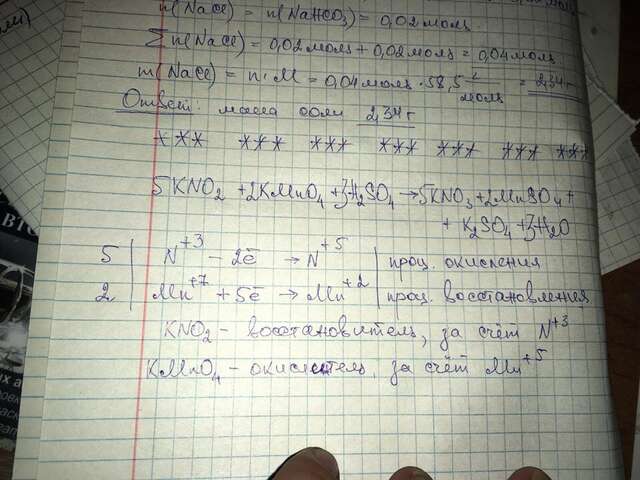 n(NaCl) = n(NaHCO₃) = 0,02 моль.
∑n(NaCl) = 0,02 моль + 0,02 моль = 0,04 моль
m(NaCl) = n·M = 0,04 моль · 58,5 г/моль = 2,34 г
Ответ: масса соли 2,34 г
*** *** *** *** *** *** ***
5KNO₂ + 2KMnO₄ + 3H₂SO₄ → 5KNO₃ + 2MnSO₄ +
+ K₂SO₄ + 3H₂O
5 | N⁺³ − 2ē → N⁺⁵ | проц. окисления
2 | Mn⁺⁷ + 5ē → Mn⁺² | проц. восстановления
KNO₂ – восстановитель, за счёт N⁺³
KMnO₄ – окислитель, за счёт Mn⁺⁵